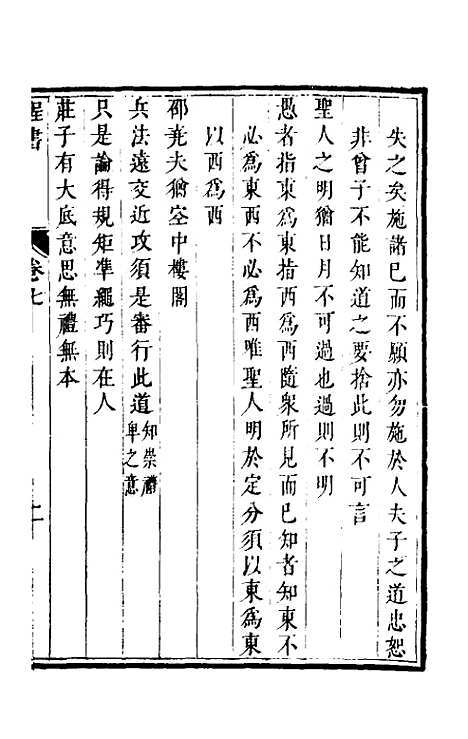 失之矣施諸已而不願亦勿施於人夫子之道忠恕
非曾子不能知道之要捨此則不可言
聖人之明猶日月不可過也過則不明
愚者指東爲東指西爲西隨衆所見而已知者知東不
必爲東西不必爲西唯聖人明於定分須以東爲東
以西爲西
邵堯夫猶空中樓閣
兵法遠交近攻須是審行此道知崇禮卑之意
只是論得規矩準繩巧則在人
莊子有大底意思無禮無本
程書
卷七